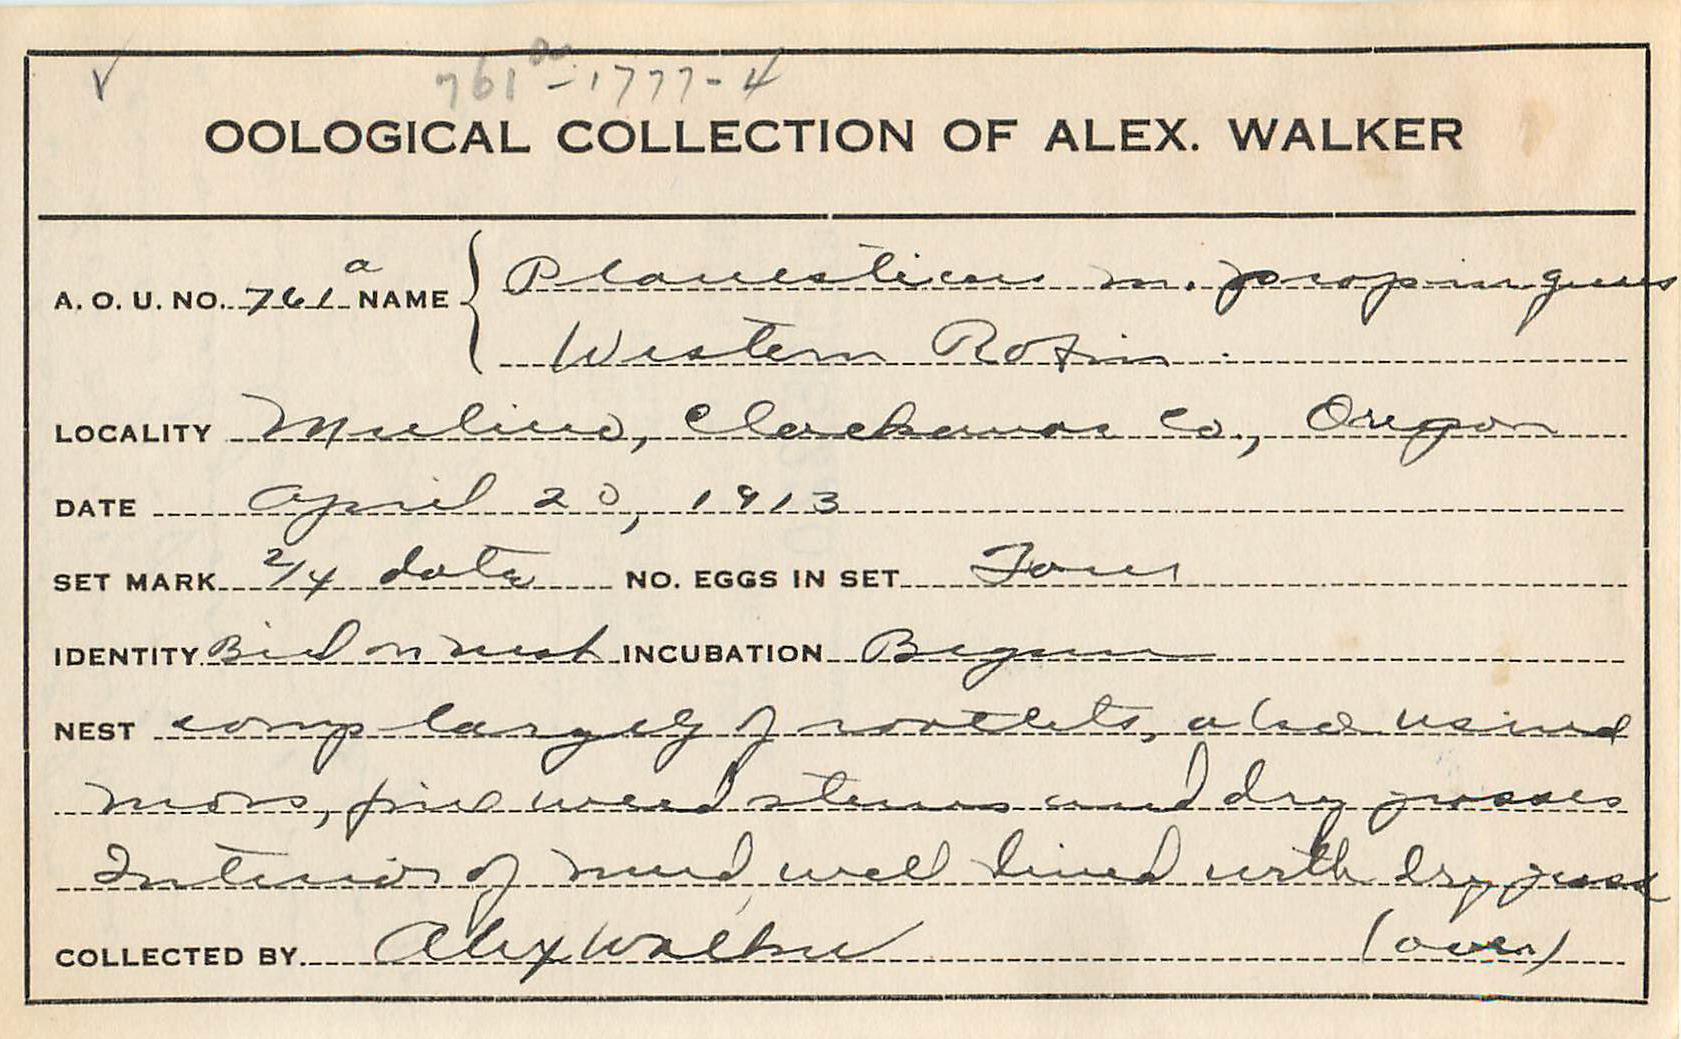 ✓ 761 00 - 1777 - 4
OOLOGICAL COLLECTION OF ALEX. WALKER
A. O. U. NO. 761a NAME { Planesticus m. propinquus
Western Robin
LOCALITY Mulino, Clackamas Co., Oregon
DATE April 20, 1913
SET MARK 2/4 date NO. EGGS IN SET Four
IDENTITY Bird on nest INCUBATION Begun
NEST comp largely of rootlets, also used
moss, fine weed stems and dry grasses
Interior of mud, well lined with dry grass
COLLECTED BY Alex Walker (over)